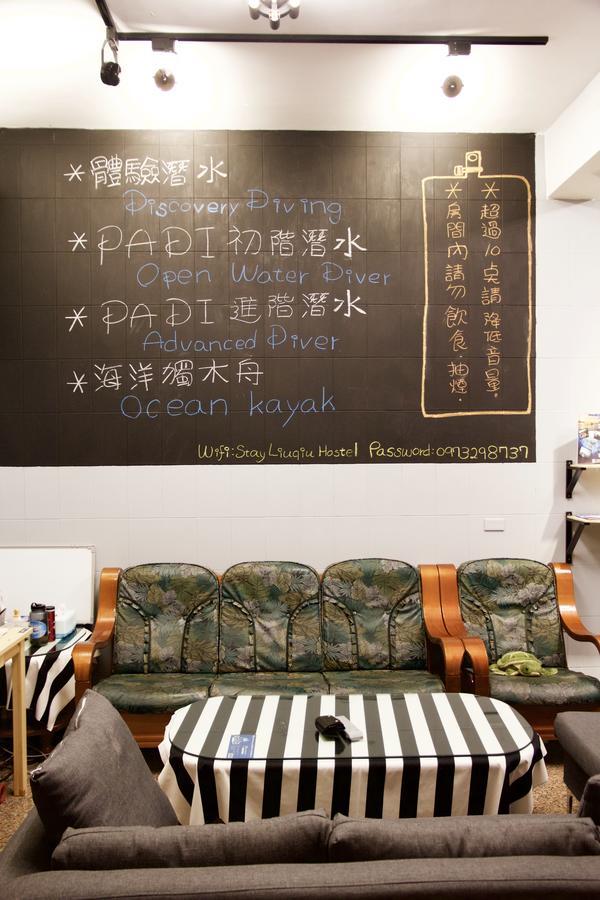 *體驗潛水
Discovery Diving
*PADI初階潛水
Open Water Diver
*PADI進階潛水
Advanced Diver
*海洋獨木舟
Ocean kayak
*超過10点請降低音量.
*房間內請勿飲食.抽煙.
Wifi:Stay Liuqiu Hostel Password:0973298737